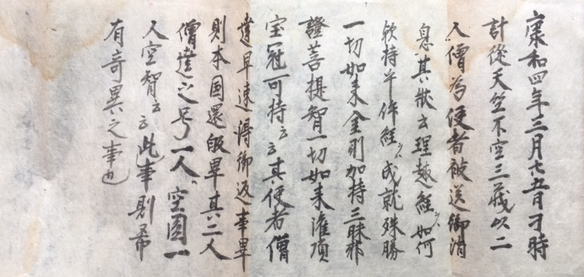 寛和四年三月七五日刁時
計從天竺不空三藏以二
人僧為使者被送御消
息其状云理趣經如何
欤持并件經成就殊勝
一切如来金剛加持三昧耶
證菩提智一切如来潅頂
宝冠可持云云其使者僧
達早速淂御返事畢
則本国還皈畢其二人
僧達之早一人空圓一
人空智云云此事則希
有奇異之事也